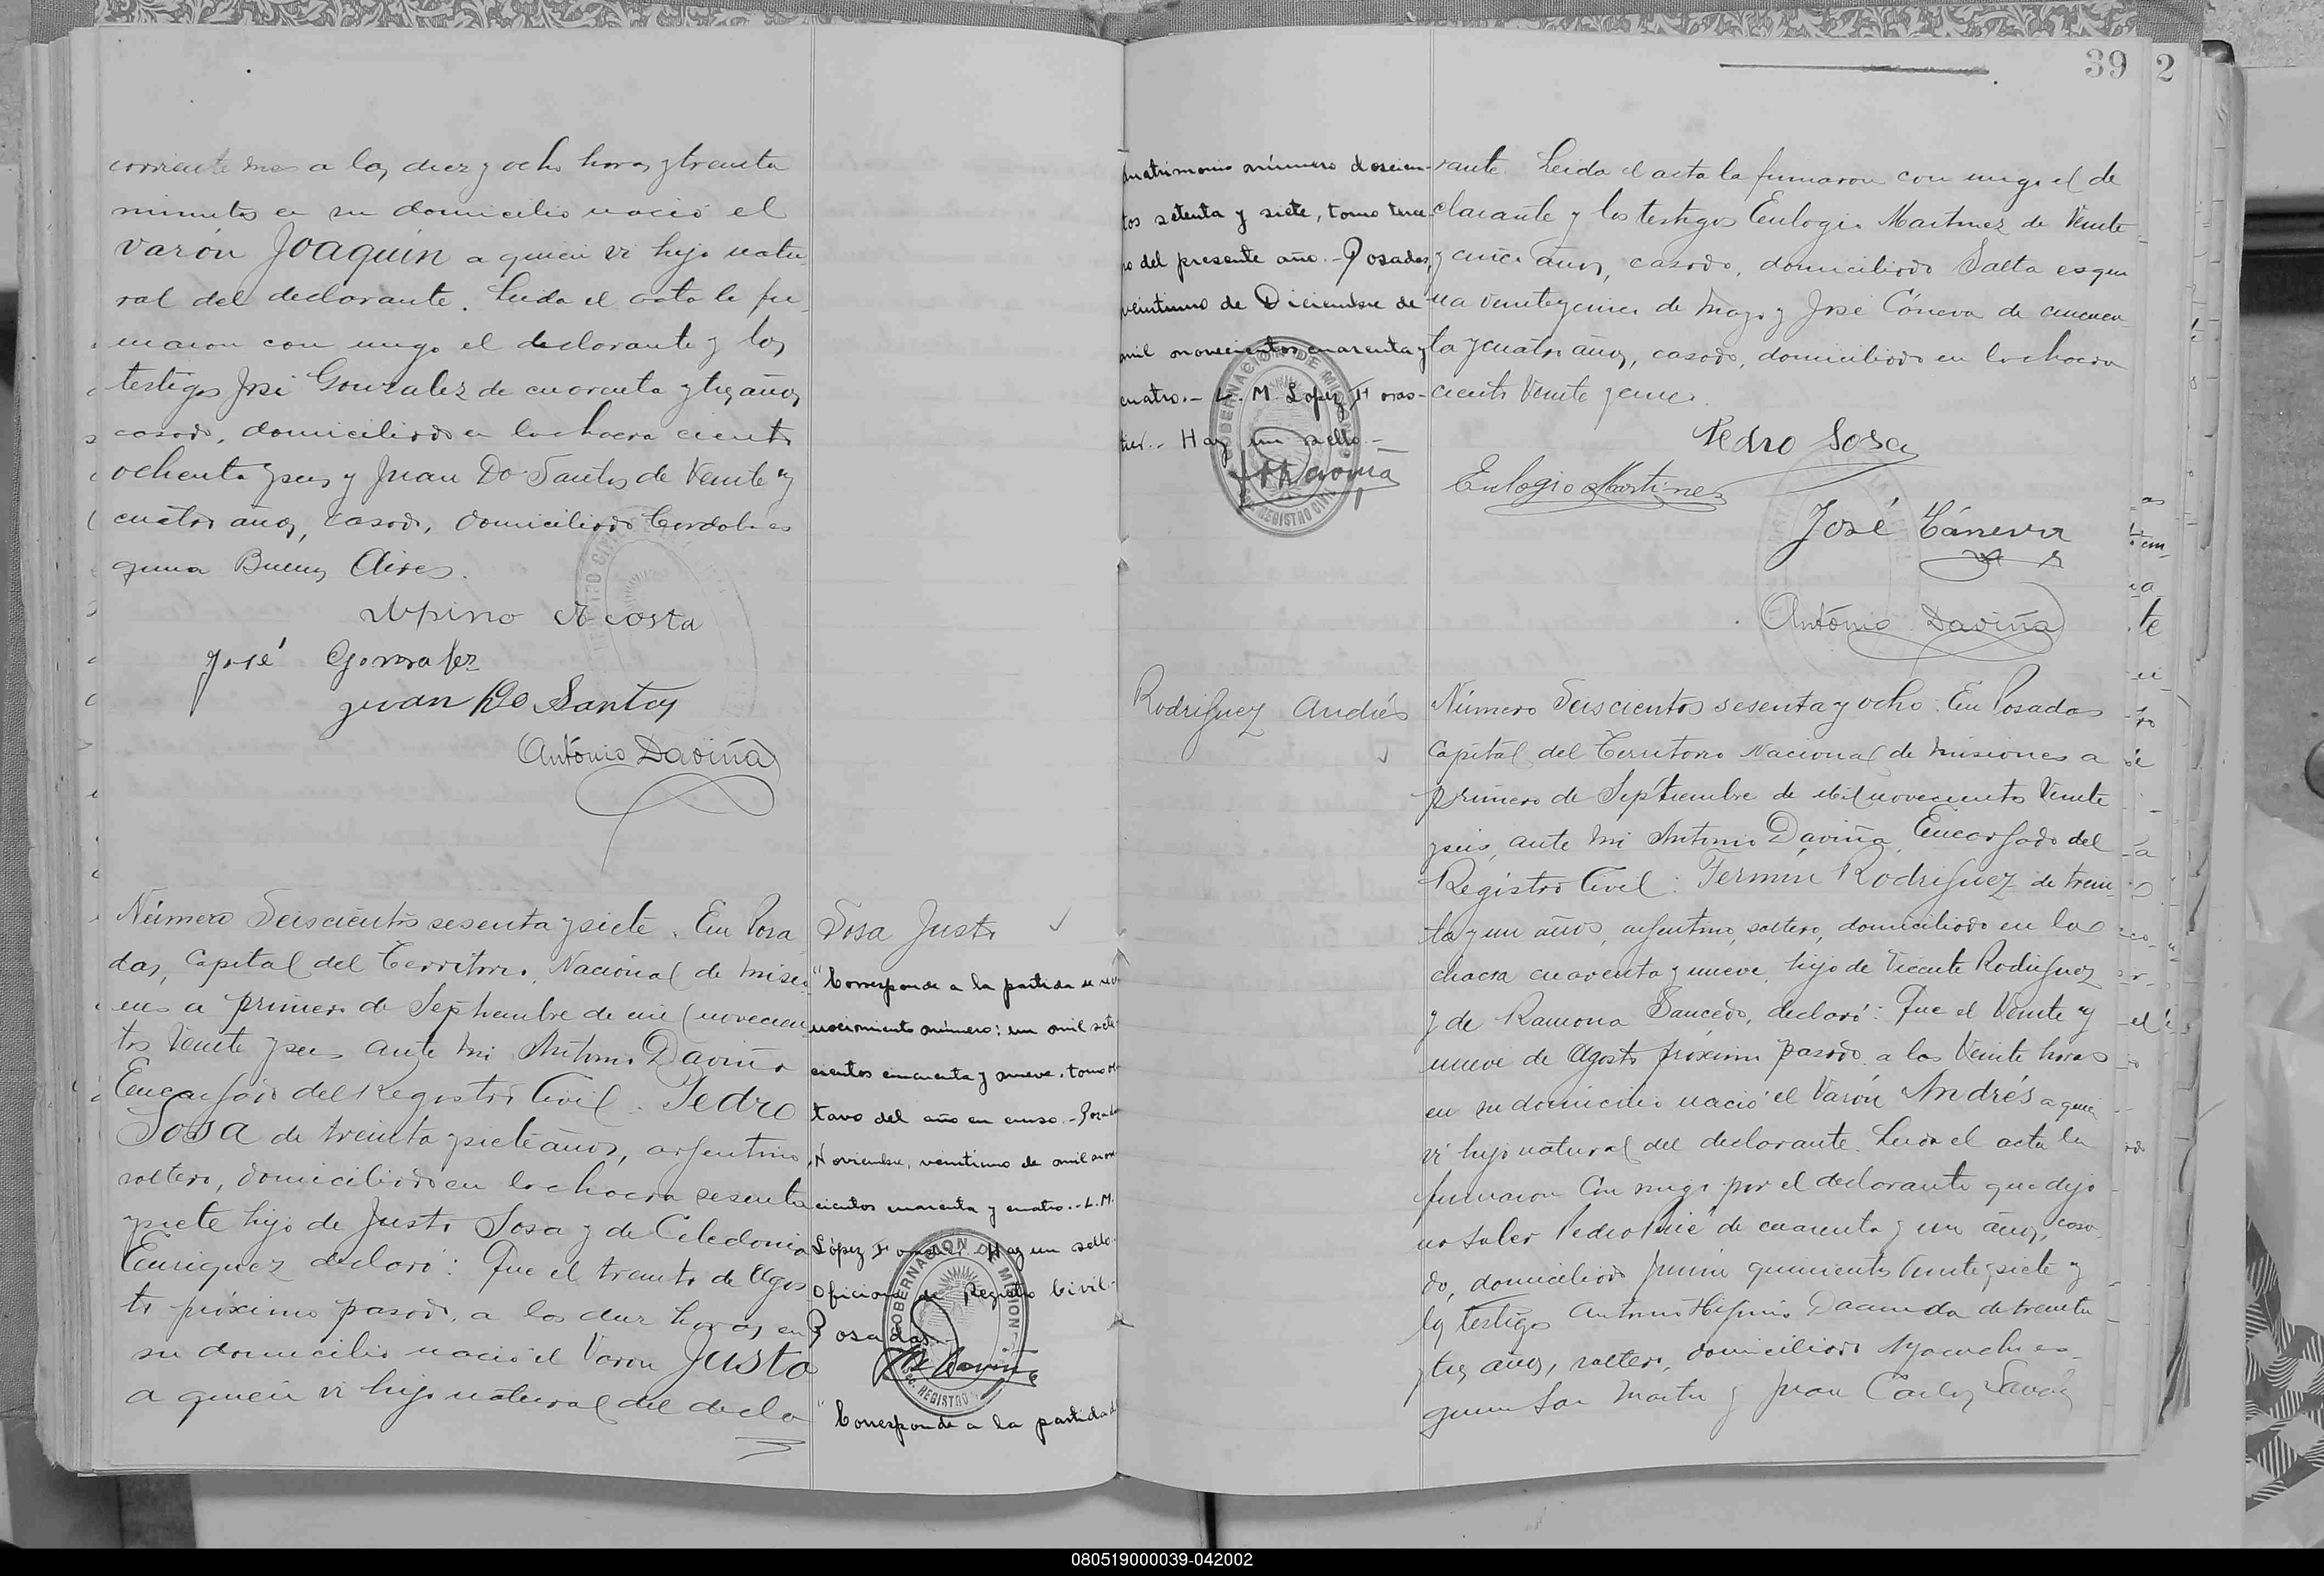 corriente mes a las diez y ocho horas y treinta
minutos en su domicilio nació el
varón Joaquin a quien vi hijo natu-
ral del declarante. Leida el acta la fir-
maron con migo el declarante y los
testigos José Gonzalez de cuarenta y tres años
casado, domiciliado en la chacra ciento
ochenta y seis y Juan Do Santos de Veinte y
cuatro años, casado, domiciliado Cordoba es
quina Buenos Aires.
Acosta
José Gonzalez
Juan Do Santos
Antonio Daviña
Número Seiscientos sesenta y siete. En Posa
das, Capital del Territorio Nacional de Misio-
nes a primero de Septiembre de mil novecien-
tos Veinte y seis ante mi Antonio Daviña
Encargado del Registro Civil. Pedro
Sosa de treinta y siete años, argentino
soltero, domiciliado en la chacra sesenta
y siete hijo de Justo Sosa y de Celedonia
Enriquez declaró: Que el treinta de Agos
to próximo pasado, a las diez horas en
su domicilio nació el Varon Justo
a quien vi hijo natural del decla
Sosa Justo
"Corresponde a la partida de reco
nocimiento número: un mil sete
cientos cincuenta y nueve, tomo oc
tavo del año en curso.- Posadas
Noviembre, veintiuno de mil nove
cientos cuarenta y cuatro.- L. M.
López Forastier. Hay un sello.
Oficina de Registro Civil-
Posadas.-
GOBERNACION DE MISIONES
REGISTRO
"Corresponde a la partida d
39 2
matrimonio número doscien-
tos setenta y siete, tomo terce-
ro del presente año.- Posadas,
veintiuno de Diciembre de
mil novecientos cuarenta y
cuatro.- L. M. López Foras-
tier.- Hay un sello.-
GOBERNACION DE MISIONES
REGISTRO CIVIL
rante. Leida el acta la firmaron con migo el de
clarante y los testigos Eulogio Martinez de Veinte
y cinco años, casado, domiciliado Salta esqui
na Veinte y cinco de Mayo y José Cáneva de cincuen
ta y cuatro años, casado, domiciliado en la chacra
ciento Veinte y cinco.
Pedro Sosa
Eulogio Martinez
José Cáneva
Antonio Daviña
Rodriguez Andrés
Número Seiscientos sesenta y ocho: En Posadas
Capital del Territorio Nacional de Misiones a
primero de Septiembre de mil novecientos Veinte
y seis, ante mi Antonio Daviña, Encargado del
Registro Civil: Fermin Rodriguez de trein-
ta y un años, argentino, soltero, domiciliado en la
chacra cuarenta y nueve, hijo de Vicente Rodriguez
y de Ramona Saucedo, declaró: Que el Veinte y
nueve de Agosto próximo pasado a las Veinte horas
en su domicilio nació el Varón Andrés a quien
vi hijo natural del declarante. Leida el acta la
firmaron con migo por el declarante que dijo
no saber Pedro de cuarenta y un años, casa-
do, domiciliado Junin quinientos Veinte y siete y
los testigos Antonio Higinio de treinta
y tres años, soltero, domiciliado Ayacucho es-
quina San Martin y Juan Carlos
080519000039-042002